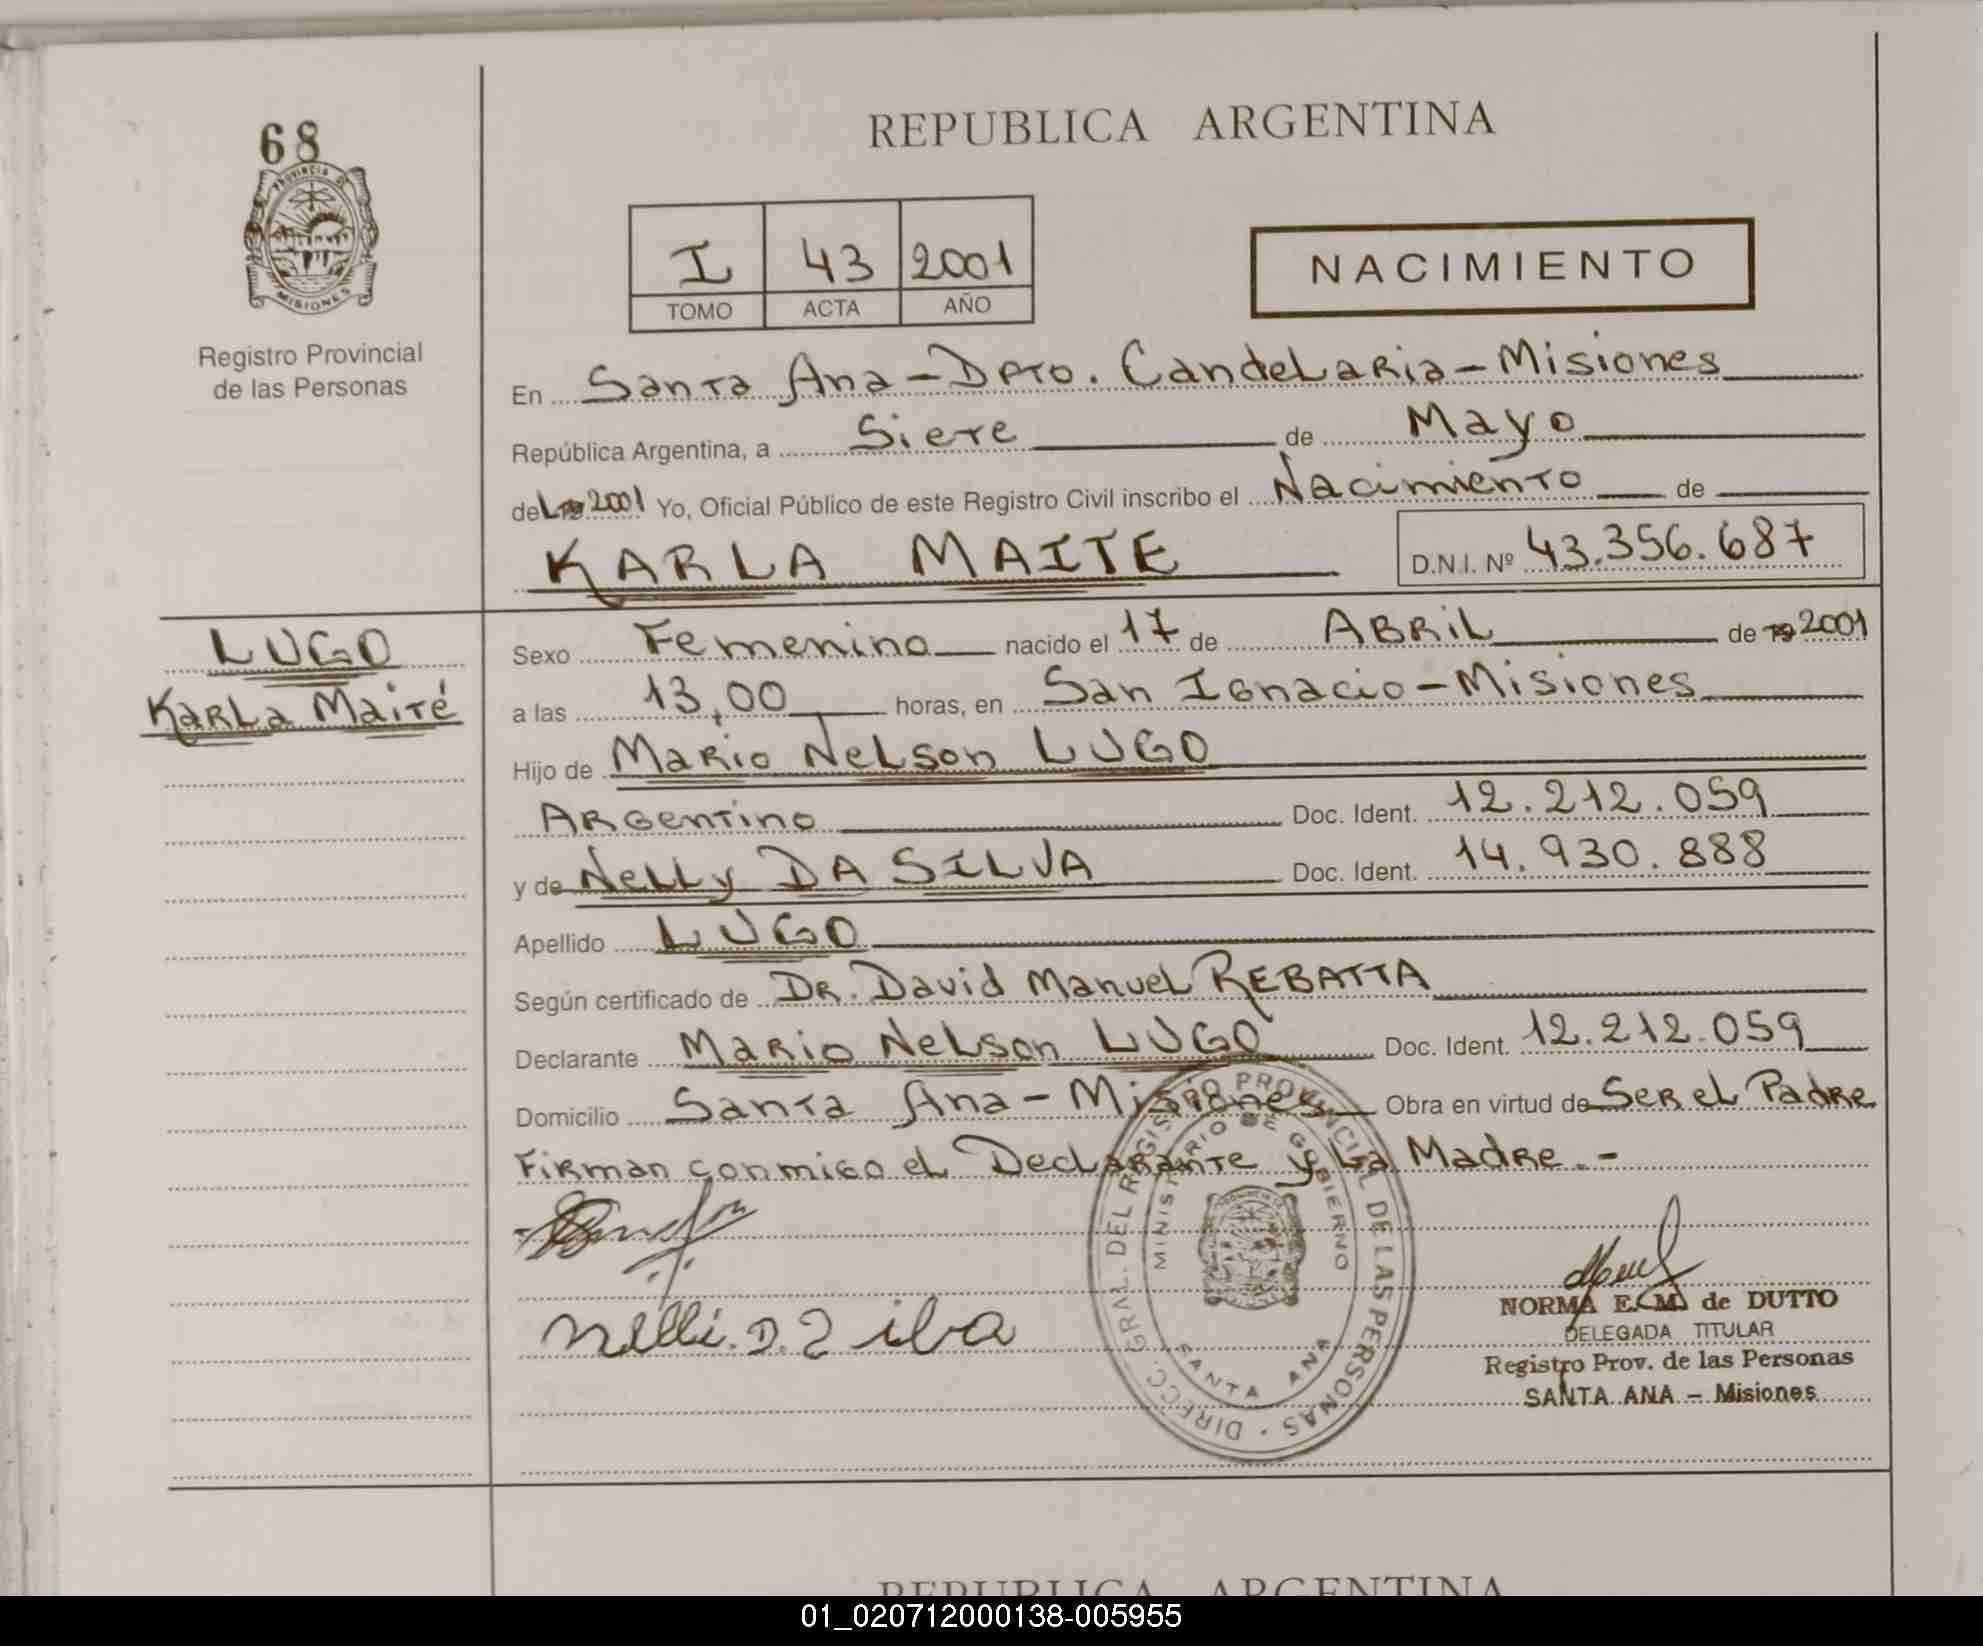 68
PROVINCIA DE
MISIONES
Registro Provincial
de las Personas
REPUBLICA ARGENTINA
I 43 2001
TOMO ACTA AÑO
NACIMIENTO
En Santa Ana - Dpto. Candelaria - Misiones
República Argentina, a Siete de Mayo
del 19 2001 Yo, Oficial Público de este Registro Civil inscribo el Nacimiento de
KARLA MAITE D.N.I. Nº 43.356.687
LUGO
Karla Maité
Sexo Femenino nacido el 17 de ABRIL de 19 2001
a las 13,00 horas, en San Ignacio - Misiones
Hijo de Mario Nelson LUGO
Argentino Doc. Ident. 12.212.059
y de Nelly DA SILVA Doc. Ident. 14.930.888
Apellido LUGO
Según certificado de Dr. David Manuel REBATTA
Declarante Mario Nelson LUGO Doc. Ident. 12.212.059
Domicilio Santa Ana - Misiones Obra en virtud de Ser el Padre
Firman conmigo el Declarante y la Madre.-
DIRECC. GRAL. DEL REGISTRO PROVINCIAL DE LAS PERSONAS
MINISTERIO DE GOBIERNO
SANTA ANA
nelli. D. Silba
NORMA E. M. de DUTTO
DELEGADA TITULAR
Registro Prov. de las Personas
SANTA ANA - Misiones
REPUBLICA ARGENTINA
01_020712000138-005955